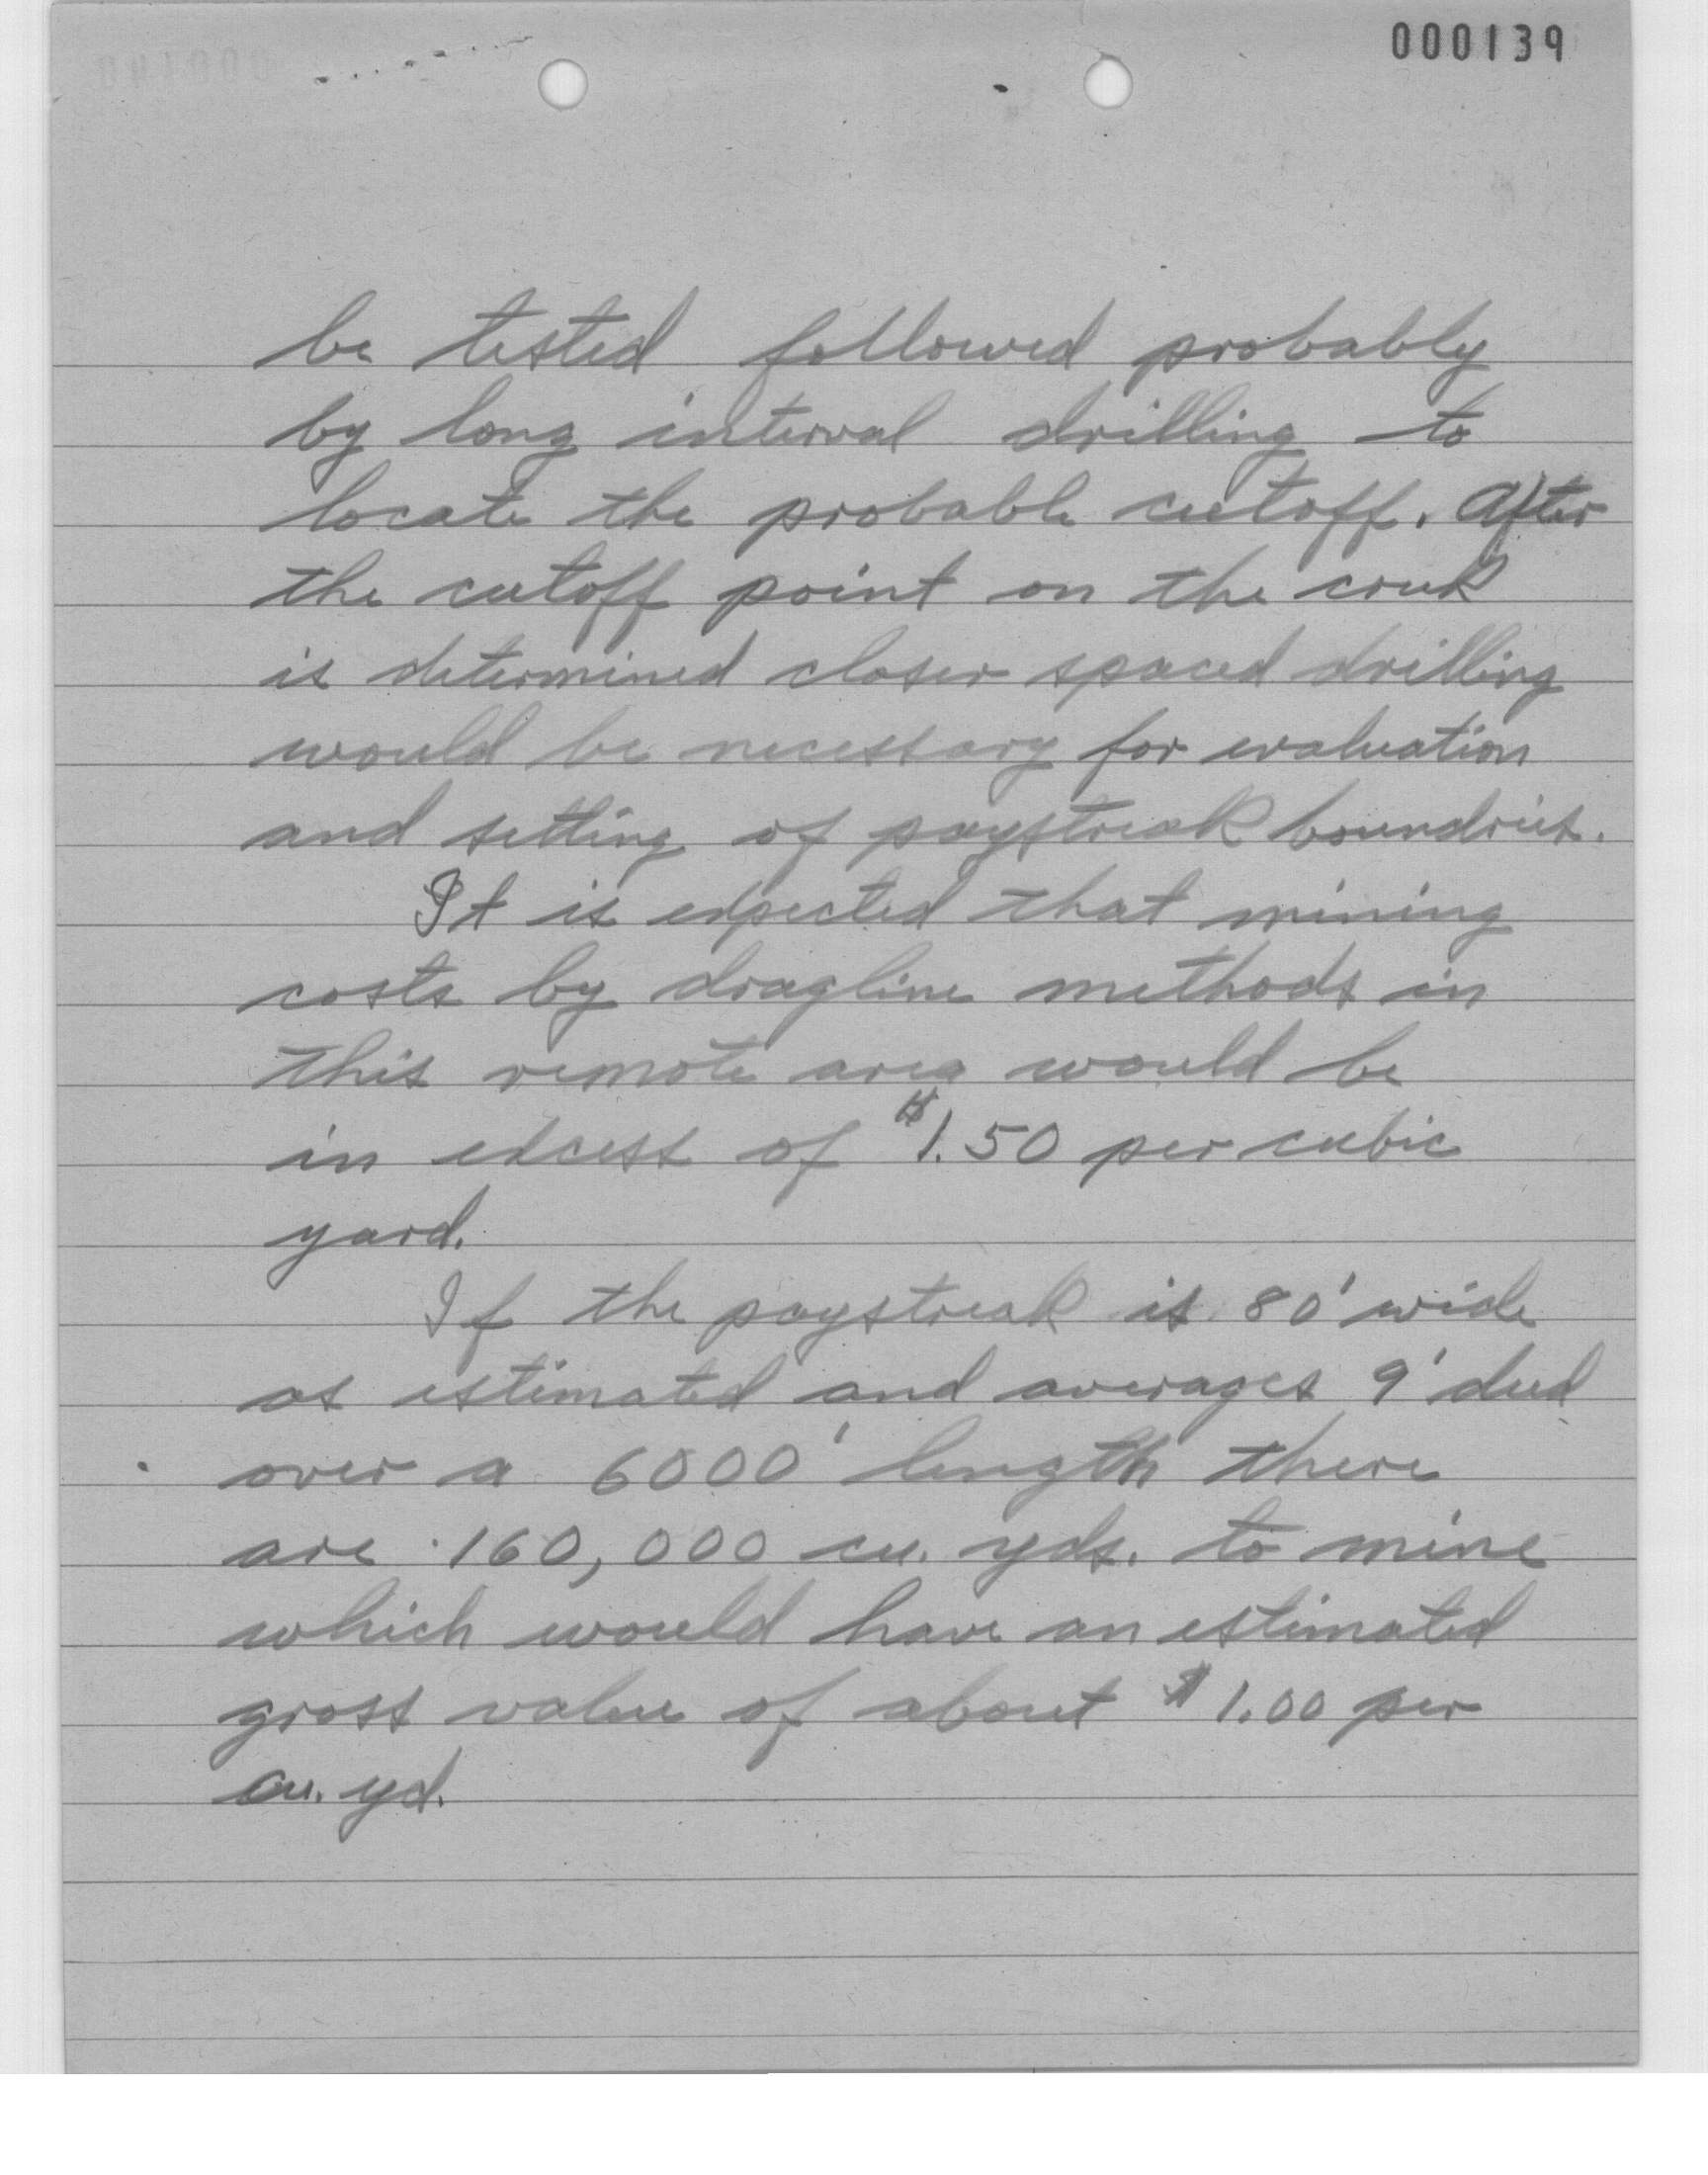 000139
be tested followed probably
by long interval drilling to
locate the probable cutoff. After
the cutoff point on the creek
is determined closer spaced drilling
would be necessary for evaluation
and setting of paystreak boundries.
It is expected that mining
costs by dragline methods in
this remote area would be
in excess of $1.50 per cubic
yard.
If the paystreak is 80' wide
as estimated and averages 9' deed
over a 6000' length there
are 160,000 cu. yds. to mine
which would have an estimated
gross value of about $1.00 per
cu. yd.